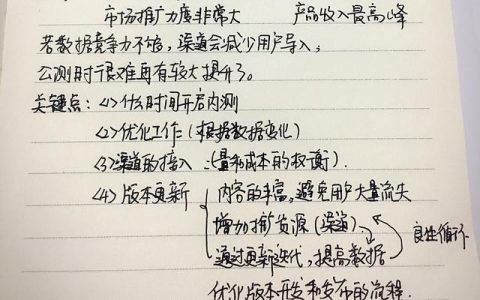 市场推广力度非常大 产品收入最高峰
若数据竞争力不够，渠道会减少用户导入，
公测时于很难再有较大提升了。
关键点：<1>什么时间开启内测
<2>优化工作（根据数据变化）
<3>渠道的接入：（量和成本的权衡）.
<4>版本更新 内容的丰富，避免用户大量流失
增加推广资源（渠道）
通过更新迭代，提高数据 良性循环
优化版本开发和发布的流程.